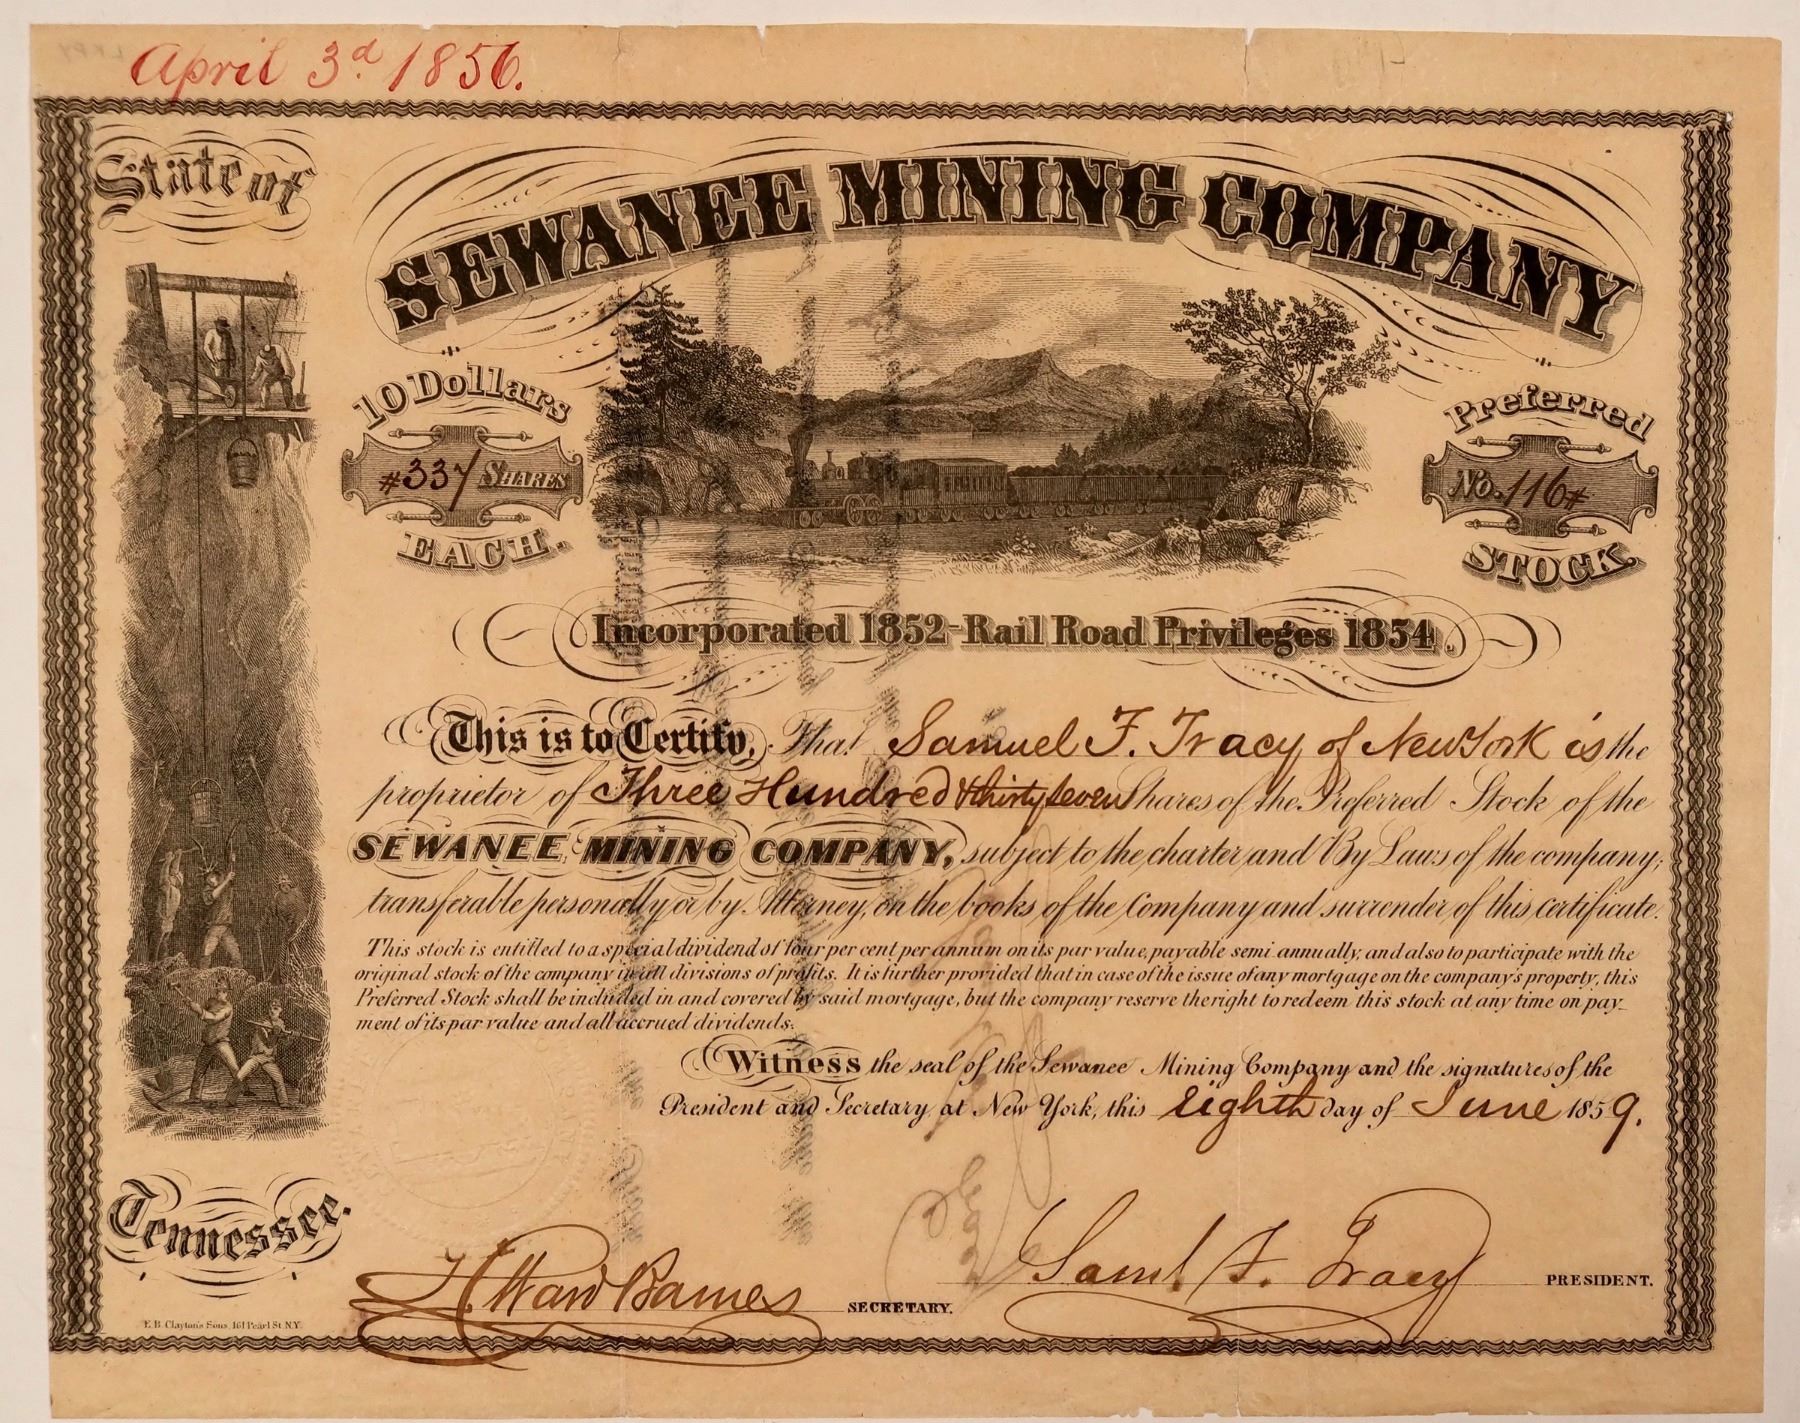 April 3d 1856.
State of
SEWANEE MINING COMPANY
10 Dollars
#337 SHARES
EACH.
Preferred
No. 116#
STOCK.
Incorporated 1852-Rail Road Privileges 1854.
This is to Certify, That Samuel F. Tracy of New York is the
proprietor of Three Hundred & thirty seven Shares of the Preferred Stock of the
SEWANEE MINING COMPANY, subject to the charter and By Laws of the company;
transferable personally or by Attorney, on the books of the Company and surrender of this certificate.
This stock is entitled to a special dividend of four per cent per annum on its par value, payable semi annually, and also to participate with the
original stock of the company in all divisions of profits. It is further provided that in case of the issue of any mortgage on the company's property, this
Preferred Stock shall be included in and covered by said mortgage, but the company reserve the right to redeem this stock at any time on pay-
ment of its par value and all accrued dividends.
Witness the seal of the Sewanee Mining Company and the signatures of the
President and Secretary, at New York, this eighth day of June 1859.
Tennessee.
H. Ward Barnes SECRETARY.
Saml. F. Tracy PRESIDENT.
E. B. Clayton's Sons, 161 Pearl St. N.Y.